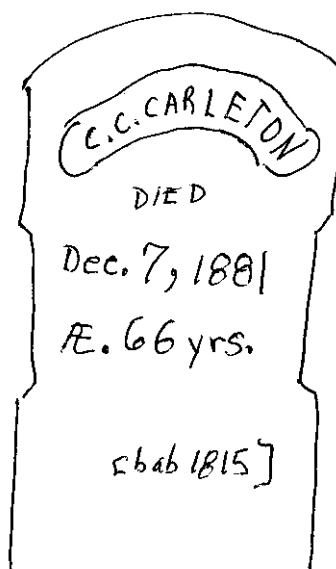 C.C. CARLETON
DIED
Dec. 7, 1881
Æ. 66 yrs.
[bab 1815]